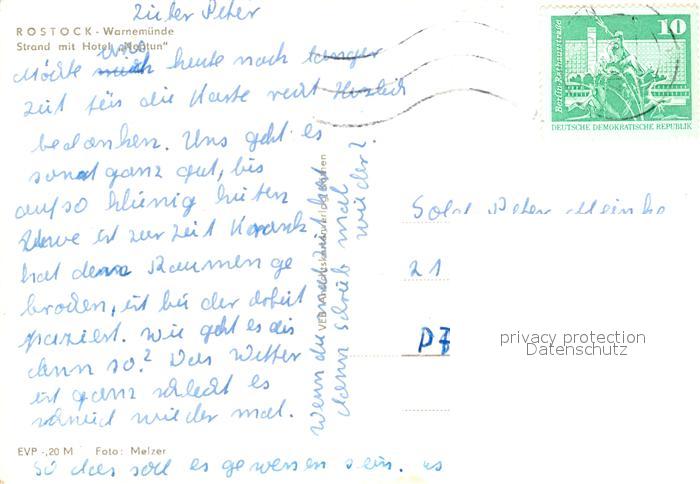 Lieber Peter
ROSTOCK - Warnemünde
Strand mit Hotel „Neptun“
Möchte mich heute nach langer
Zeit für die Karte recht Herzlich
bedanken. Uns geht es
sonst ganz gut, bis
auf so
ist zur Zeit Krank
hat den Daumen ge
brochen, ist bei der Arbeit
paziert. Wie geht es dir
denn so? Das Wetter
ist ganz schlecht es
schneid wieder mal.
EVP -,20 M Foto: Melzer
So das soll es gewesen sein.
Wenn du mal Zeit hast
dann schreib mal
wieder?
VEB
10
Berlin-Rathausstraße
DEUTSCHE DEMOKRATISCHE REPUBLIK
Sold Peter
21
privacy protection
Datenschutz